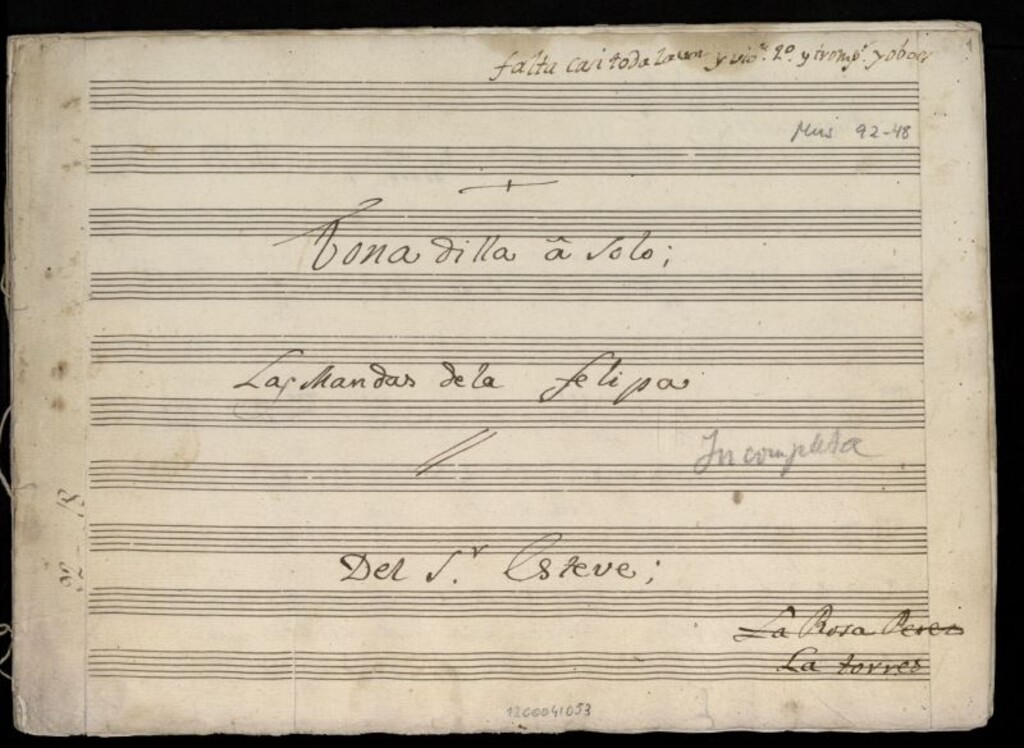 falta casi toda la y vio.n 2º. y tromp.s y oboes
1
Mus 92-48
Tonadilla â solo;
Las Mandas dela Felipa
Incompleta
Del S.r Esteve;
La Rosa Perez
La torres
1200041053